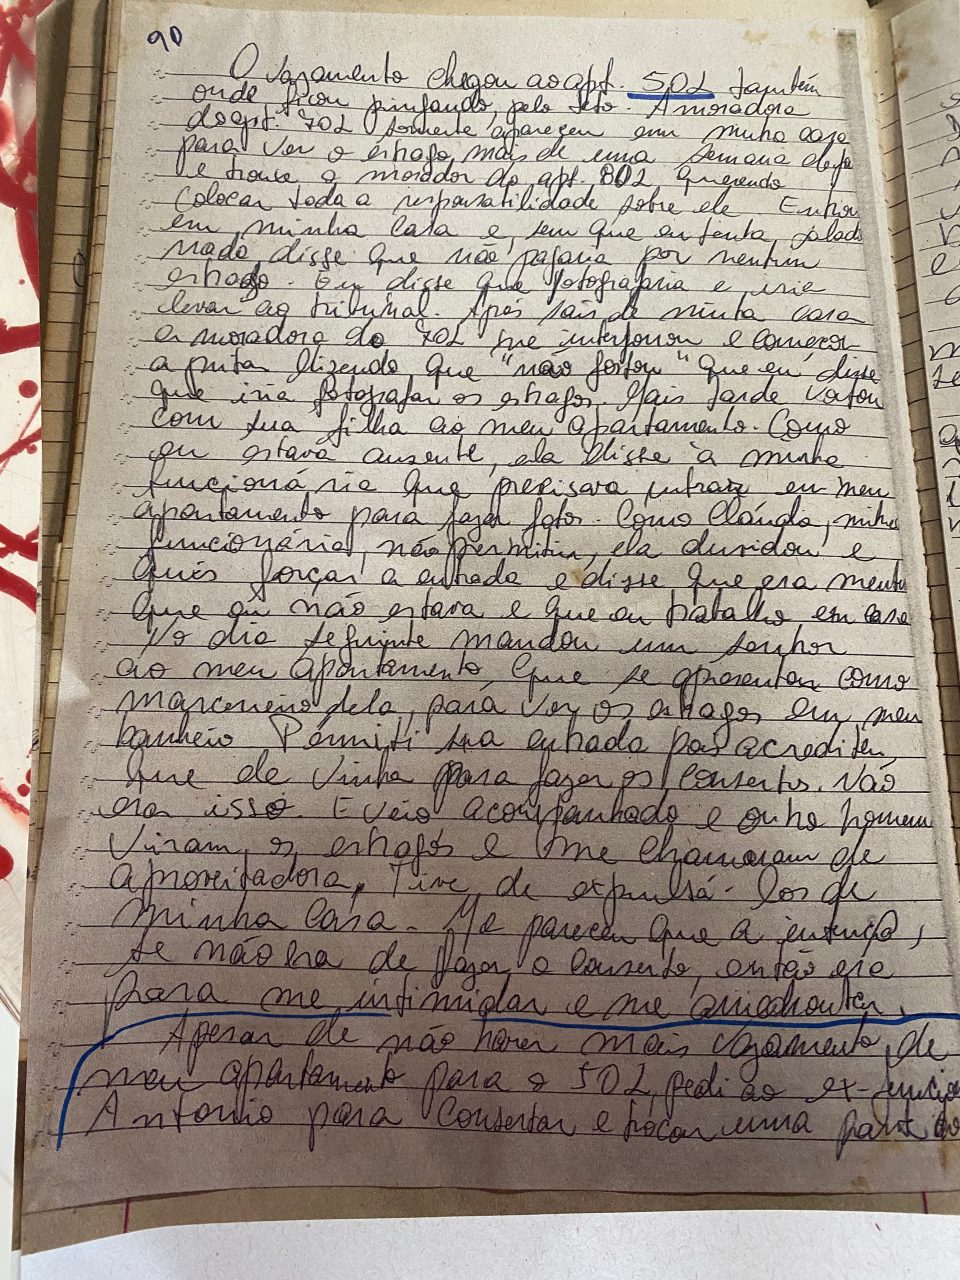 90
O vazamento chegou ao apt. 502 também
onde ficou pingando, pelo teto. A moradora
do apt. 702 somente apareceu em minha casa
para ver o estrago, mais de uma semana depo
e trouxe o morador do apt. 802 querendo
colocar toda a responsabilidade sobre ele. Entrou
em minha casa e, sem que eu tenha falado
nada, disse que não pagaria por nenhum
estrago. Eu disse que fotografaria e iria
levar ao tribunal. Após sair de minha casa
a moradora do 702 me interfonou e começou
a gritar dizendo que "não gostou" que eu disse
que iria fotografar os estragos. Mais tarde voltou
com sua filha ao meu apartamento. Como
eu estava ausente, ela disse à minha
funcionária que precisava entrar em meu
apartamento para fazer fotos. Como Cláudia, minha
funcionária, não permitiu, ela duvidou e
quis forçar a entrada e disse que era mentir
que eu não estava e que eu trabalho em casa
No dia seguinte mandou um senhor
ao meu apartamento, que se apresentou como
marceneiro dela, para ver os estragos em meu
banheiro. Permiti sua entrada pois acreditei
que ele vinha para fazer os consertos. Não
era isso. E veio acompanhado e outro homem
Viram os estragos e me chamaram de
aproveitadora. Tive de expulsá-los de
minha casa. Me pareceu que a intenção,
se não era de fazer o conserto, então era
para me intimidar e me amedrontar.
Apesar de não haver mais vazamento de
meu apartamento para o 502, pedi ao ex-funcio
Antonio para consertar e trocar uma parte do